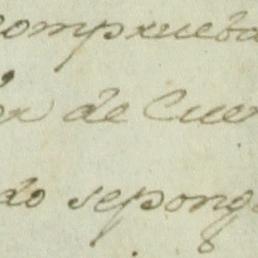 comprueba
de Cuen
do seponga